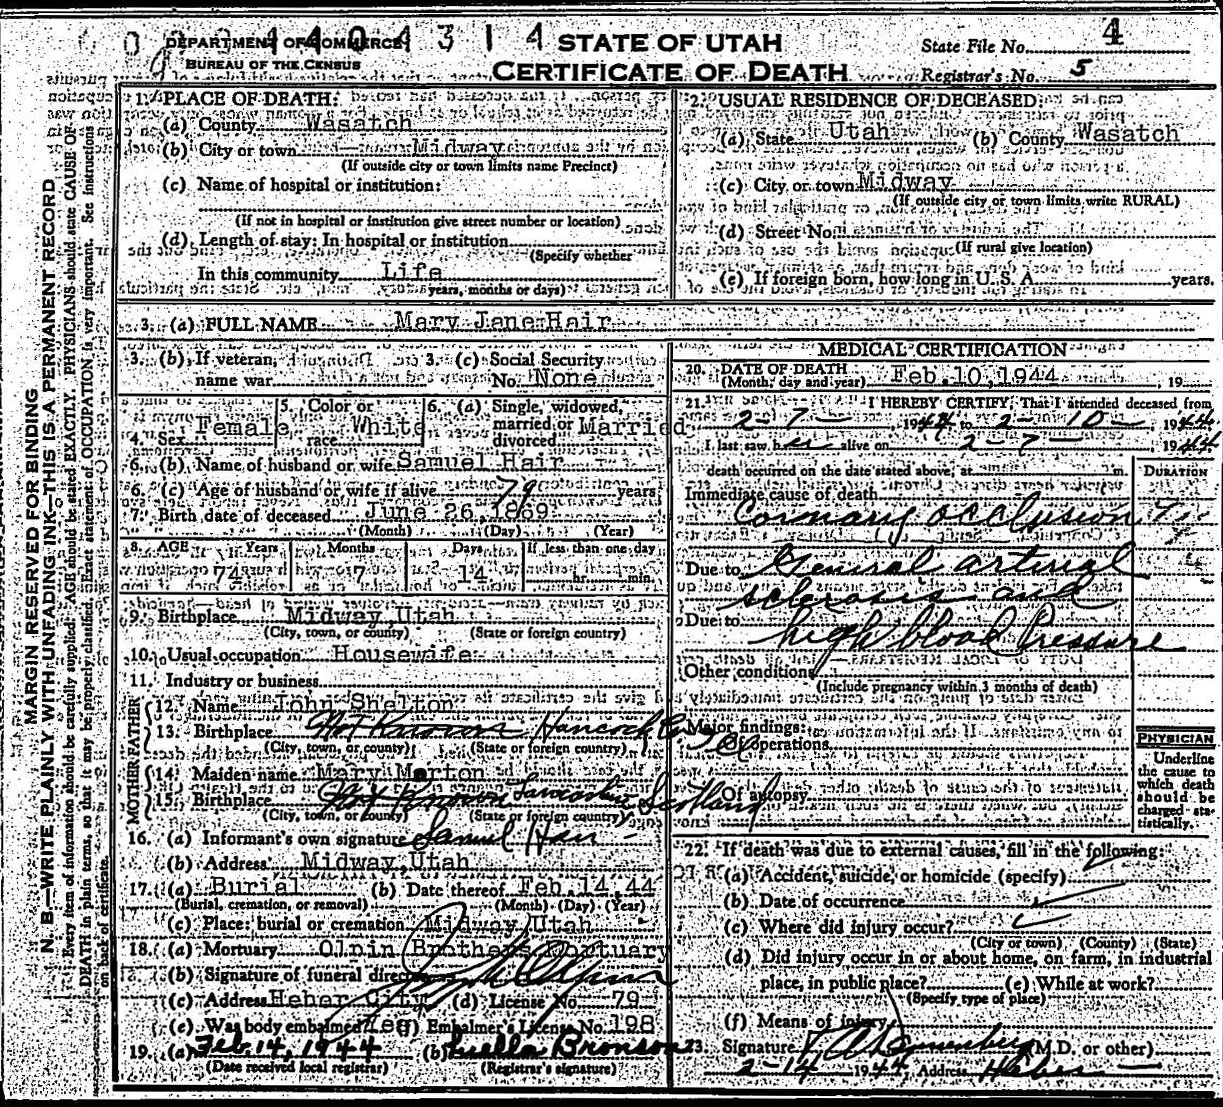 DEPARTMENT OF COMMERCE
BUREAU OF THE CENSUS
STATE OF UTAH
CERTIFICATE OF DEATH
State File No. 4
Registrar's No. 5
MARGIN RESERVED FOR BINDING
N. B.—WRITE PLAINLY WITH UNFADING INK—THIS IS A PERMANENT RECORD
Every item of information should be carefully supplied. AGE should be stated EXACTLY. PHYSICIANS should state CAUSE OF
DEATH in plain terms, so that it may be properly classified. Exact statement of OCCUPATION is very important. See instructions
on back of certificate.
1. PLACE OF DEATH:
(a) County Wasatch
(b) City or town Midway
(If outside city or town limits name Precinct)
(c) Name of hospital or institution:
(If not in hospital or institution give street number or location)
(d) Length of stay: In hospital or institution
(Specify whether
In this community Life
years, months or days)
2. USUAL RESIDENCE OF DECEASED:
(a) State Utah (b) County Wasatch
(c) City or town Midway
(If outside city or town limits write RURAL)
(d) Street No.
(If rural give location)
(e) If foreign born, how long in U. S. A. years.
3. (a) FULL NAME Mary Jane Hair
3. (b) If veteran, name war
3. (c) Social Security No. None
4. Sex Female
5. Color or race White
6. (a) Single, widowed, married or divorced Married
6. (b) Name of husband or wife Samuel Hair
6. (c) Age of husband or wife if alive 79 years
7. Birth date of deceased June 26, 1869
(Month) (Day) (Year)
8. AGE Years Months Days If less than one day
74 7 14 hr. min.
9. Birthplace Midway, Utah
(City, town, or county) (State or foreign country)
10. Usual occupation Housewife
11. Industry or business
FATHER
12. Name John Shelton
13. Birthplace Not Known Hancock
(City, town, or county) (State or foreign country)
MOTHER
14. Maiden name Mary Morton
15. Birthplace Not Known Scotland
(City, town, or county) (State or foreign country)
16. (a) Informant's own signature Samuel Hair
(b) Address Midway, Utah
17. (a) Burial (b) Date thereof Feb. 14, 44
(Burial, cremation, or removal) (Month) (Day) (Year)
(c) Place: burial or cremation Midway, Utah
18. (a) Mortuary Olpin Brothers Mortuary
(b) Signature of funeral director
(c) Address Heber City (d) License No. 79
(e) Was body embalmed Yes (f) Embalmer's License No. 198
19. (a) Feb. 14, 1944 (b) Luella Bronson
(Date received local registrar) (Registrar's signature)
MEDICAL CERTIFICATION
20. DATE OF DEATH
(Month, day and year) Feb. 10, 1944, 19
21. I HEREBY CERTIFY, That I attended deceased from
2-7-, 1944 to 2-10-, 1944
I last saw her alive on 2-7-, 1944
death occurred on the date stated above, at m.
DURATION
Immediate cause of death
Coronary occlusion
Due to General arterial
sclerosis and
Due to high blood Pressure
Other conditions
(Include pregnancy within 3 months of death)
Major findings:
Of operations
Of autopsy
PHYSICIAN
Underline
the cause to
which death
should be
charged sta-
tistically.
22. If death was due to external causes, fill in the following:
(a) Accident, suicide, or homicide (specify)
(b) Date of occurrence
(c) Where did injury occur?
(City or town) (County) (State)
(d) Did injury occur in or about home, on farm, in industrial
place, in public place? (e) While at work?
(Specify type of place)
(f) Means of injury
23. Signature (M.D. or other)
2-14 1944, Address Heber